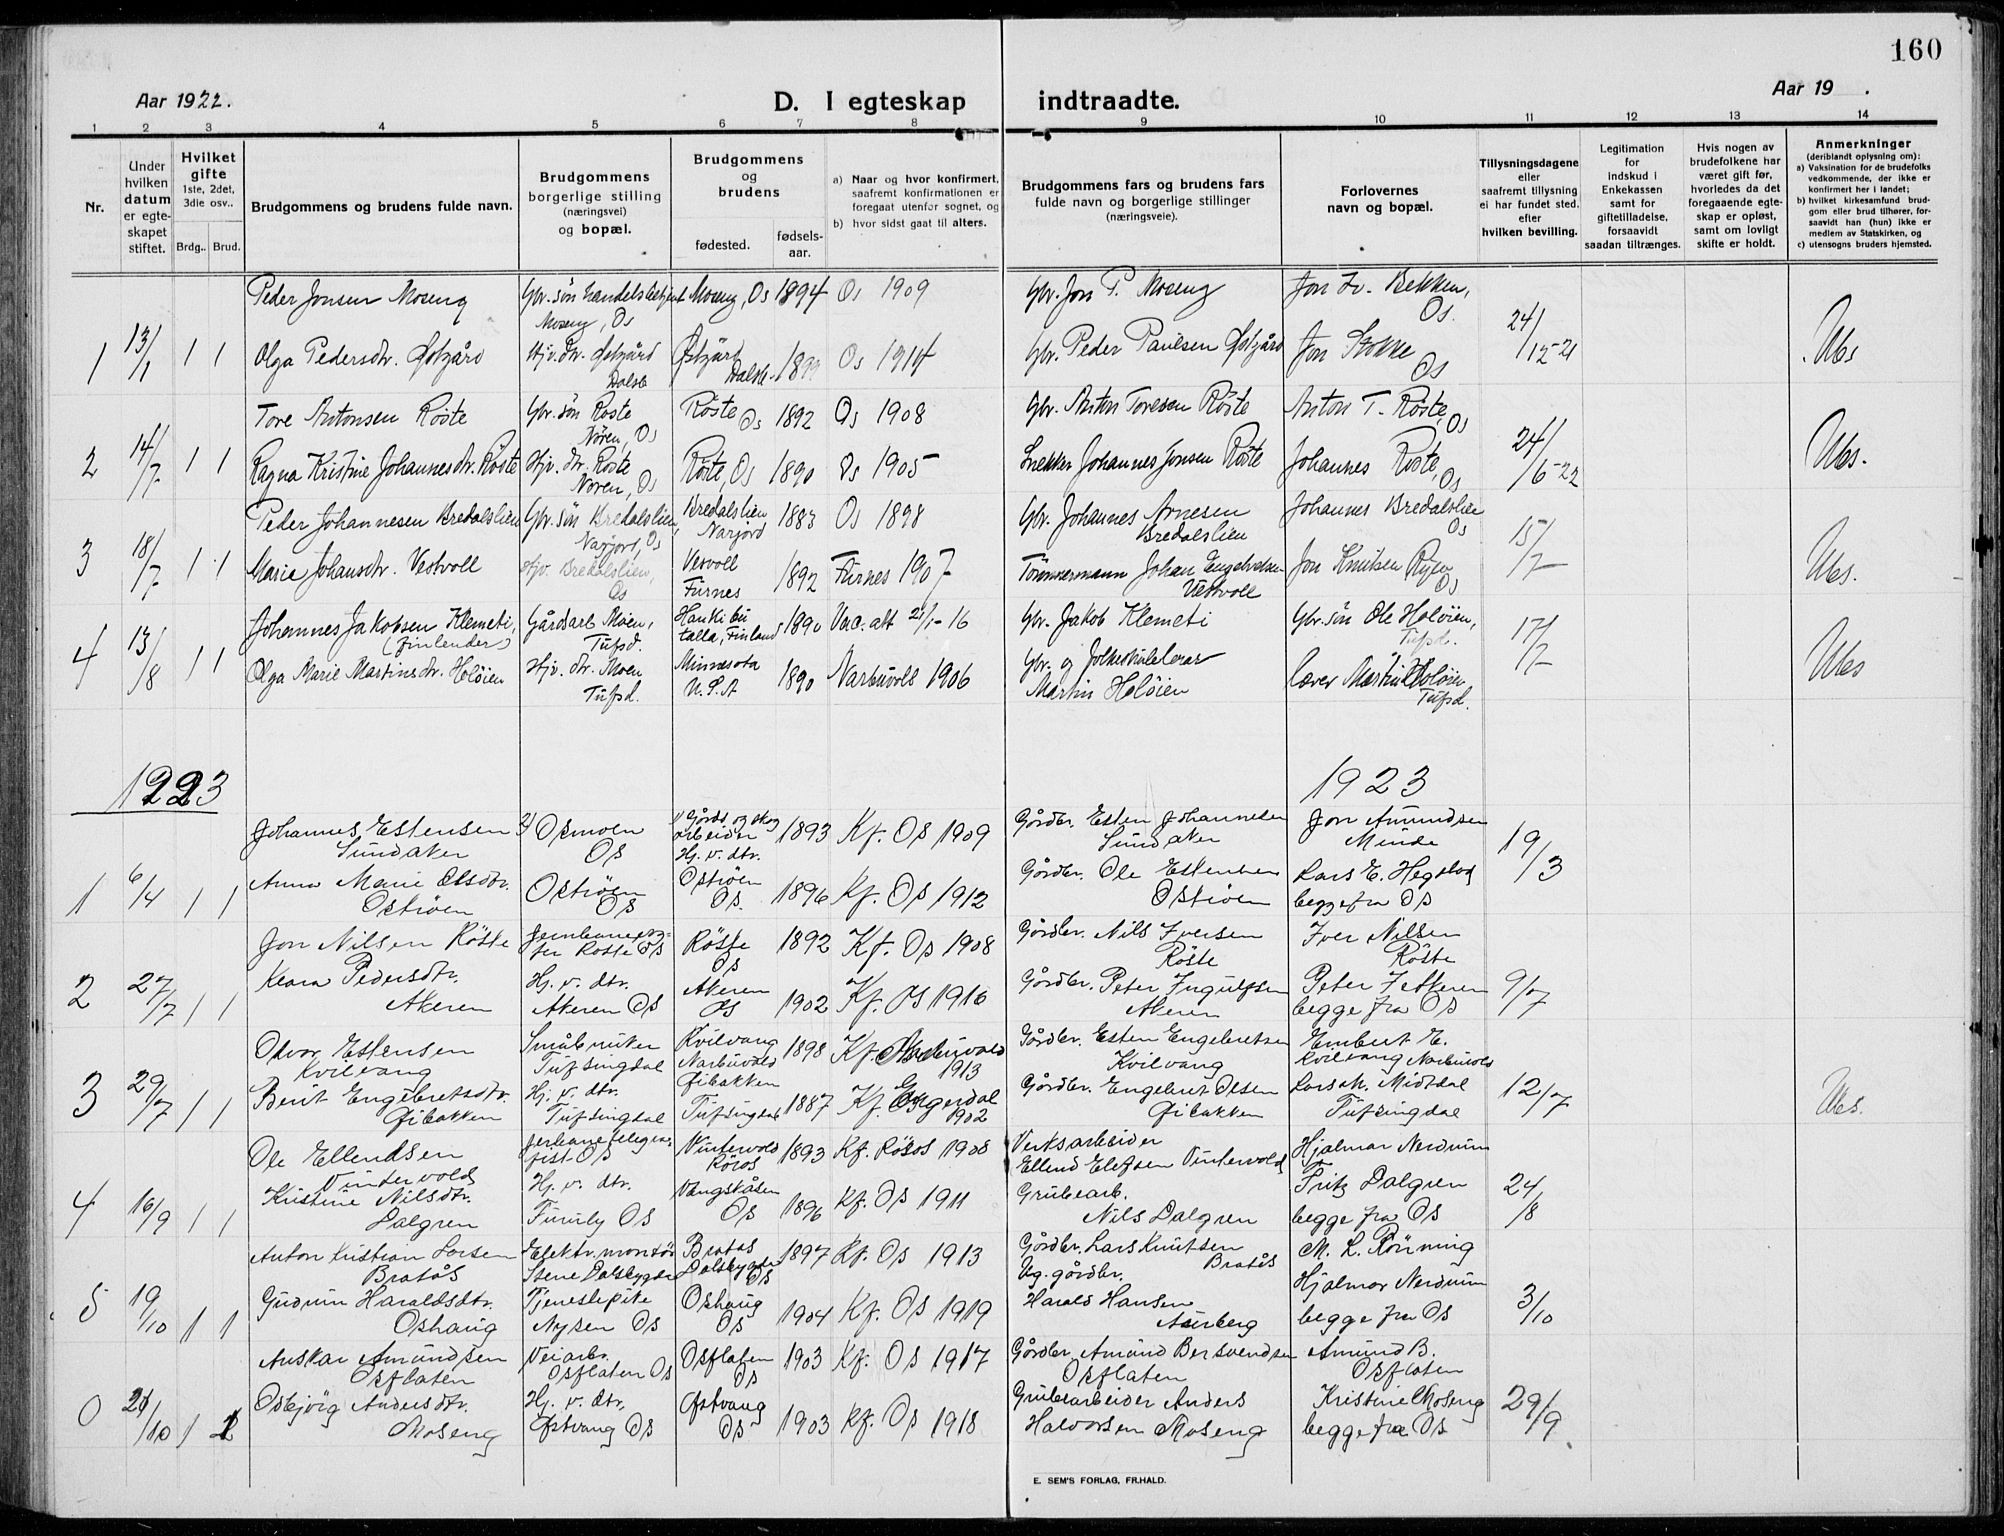 160
Aar 1922.
D. I egteskap indtraadte.
Aar 19 .
1 2 3 4 5 6 7 8 9 10 11 12 13 14
Nr.
Under hvilken datum er egteskapet stiftet.
Hvilket gifte 1ste, 2det, 3die osv..
Brdg.. Brud.
Brudgommens og brudens fulde navn.
Brudgommens borgerlige stilling (næringsvei) og bopæl.
Brudgommens og brudens
fødested. fødsels-aar.
a) Naar og hvor konfirmert, saafremt konfirmationen er foregaat utenfor sognet, og
b) hvor sidst gaat til alters.
Brudgommens fars og brudens fars fulde navn og borgerlige stillinger (næringsveie).
Forlovernes navn og bopæl.
Tillysningsdagene eller saafremt tillysning ei har fundet sted. efter hvilken bevilling.
Legitimation for indskud i Enkekassen samt for giftetilladelse, forsaavidt saadan tiltrænges.
Hvis nogen av brudefolkene har været gift før, hvorledes da det foregaaende egteskap er opløst, samt om lovligt skifte er holdt.
Anmerkninger (deriblandt oplysning om):
a) Vaksination for de brudefolks vedkommende, der ikke er konfirmert her i landet;
b) hvilket kirkesamfund brudgom eller brud tilhører, forsaavidt han (hun) ikke er medlem av Statskirken, og
c) utensogns bruders hjemsted.
Peder Jonsen Moseng Gbr. søn handelsbetjent Moseng, Os Moseng, Os 1894 Os 1909 Gbr. Jon P. Moseng Jon Iv. Bekken, Os.
1 13/1 1 1 Olga Pedersdtr. Østgård Hjv. dtr. Østgård Dalsb Østgård Dalsb. Os 1914 Gbr. Peder Paulsen Østgård Jon Stokke Os 24/12-21
Tore Antonsen Røste Gbr. søn Røste Nøren, Os Røste Os 1892 Os 1908 Gbr. Anton Toresen Røste Anton T. Røste, Os
2 14/7 1 1 Ragna Kristine Johannesdtr. Røste Hjv. dtr. Røste Nøren, Os Røste, Os 1890 Os 1905 Snekker Johannes Jonsen Røste Johannes Røste, Os 24/6-22
Peder Johannesen Bredalslien Gbr. søn Bredalslien, Narjord, Os Bredalslien Narjord 1883 Os 1898 Gbr. Johannes Arnesen Bredalslien Johannes Bredalslien Os
3 18/7 1 1 Marie Johansdtr. Vestvoll Hjv. Bredalslien, Os Vesvoll Furnes 1892 Furnes 1907 Tømmermann Johan Engebretsen Vestvoll Jon Knutsen Ryen Os 15/7
Johannes Jakobsen Klemeti, (finlender) Gårdarb. Moen, Tufsd. 1890 Vac. att 21/1-16 Gbr. Jakob Klemeti Gbr. søn Ole Holøien, Tufsd.
4 13/8 1 1 Olga Marie Martinsdtr. Holøien Hjv. dtr. Moen Tufsd. Minnesota U.S.A 1890 Narbuvoll 1906 Gbr. og folkeskolelærer Martin Holøien lærer Martin Holøien Tufsd. 17/7
1923
1923
Johannes Estensen Sundaker 2) Osmoen Os 1) Gårds og skog arbeider 1893 Kf. Os 1909 Gårdbr. Esten Johannesen Sundaker Jon Amundsen Minde
1 6/4 1 1 Anna Marie Olsdtr. Ostrøen Ostrøen Os Hj. v. dtr. Ostrøen Os. 1896 Kf. Os 1912 Gårdbr. Ole Estensen Ostrøen Lars E. Hegstad begge fra Os 19/3
Jon Nilsen Røste Røste Os Røste Os 1892 Kf. Os 1908 Gårdbr. Nils Iversen Røste Iver Nilsen Røste
2 27/7 1 1 Klara Pedersdtr. Akeren Hj. v. dtr. Akeren Os Akeren Os 1902 Kf. Os 1916 Gårdbr. Peter Ingulfsen Akeren Peter I. Akeren begge fra Os 9/7
Olvar Estensen Kvilvang Småbruker Tufsingdal Kvilvang Narbuvold 1898 Kf. Narbuvold 1913 Gårdbr. Esten Engebretsen Kvilvang Embert E. Kvilvang Narbuvold
3 29/7 1 1 Berit Engebretsdtr. Øibakken Hj. v. dtr. Tufsingdal Øibakken Tufsingdal 1887 Kf. Engerdal 1902 Gårdbr. Engebret Olsen Øibakken Lars M. Midtdal Tufsingdal 12/7
Ole Ellendsen Vintervold Os Vintervold Røros 1893 Kf. Røros 1908 Verksarbeider Ellend Elefsen Vintervold Hjalmar Nerdrum
4 16/9 1 1 Kristine Nilsdtr. Dalgren Hj. v. dtr. Furuly Os Vangskåsen Os 1896 Kf. Os 1911 Grubearb. Nils Dalgren Fritz Dalgren begge fra Os 24/8
Anton Kristian Larsen Bratås Elektr. montør Stene Dalsbygda Bratås Dalsbygda Os 1897 Kf. Os 1913 Gårdbr. Lars Knutsen Bratås M. L. Rønning
5 19/10 1 1 Gudrun Haraldsdtr. Oshaug Tjenestepike Nysen Os Oshaug Os 1904 Kf. Os 1919 Ug. gårdbr. Harald Hansen Aurberg Hjalmar Nerdrum begge fra Os 3/10
Anskar Amundsen Osflaten Veiarb. Osflaten Os Osflaten Os 1903 Kf. Os 1917 Gårdbr. Amund Bersvendsen Osflaten Amund B. Osflaten
21/10 1 Osbjørg Andersdtr. Moseng Hj. v. dtr. Østvang Os Østvang Os 1903 Kf. Os 1918 Grubearbeider Anders Halvorsen Moseng Kristine Moseng begge fra Os 29/9
E. SEM'S FORLAG, FR.HALD.